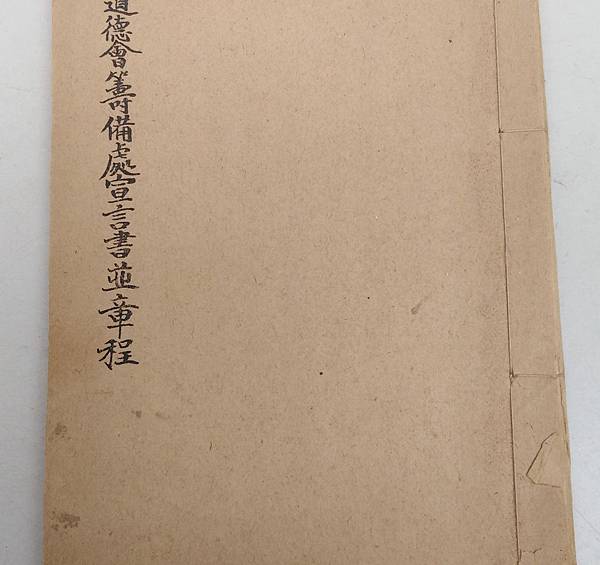 道德會籌備處宣言書並章程